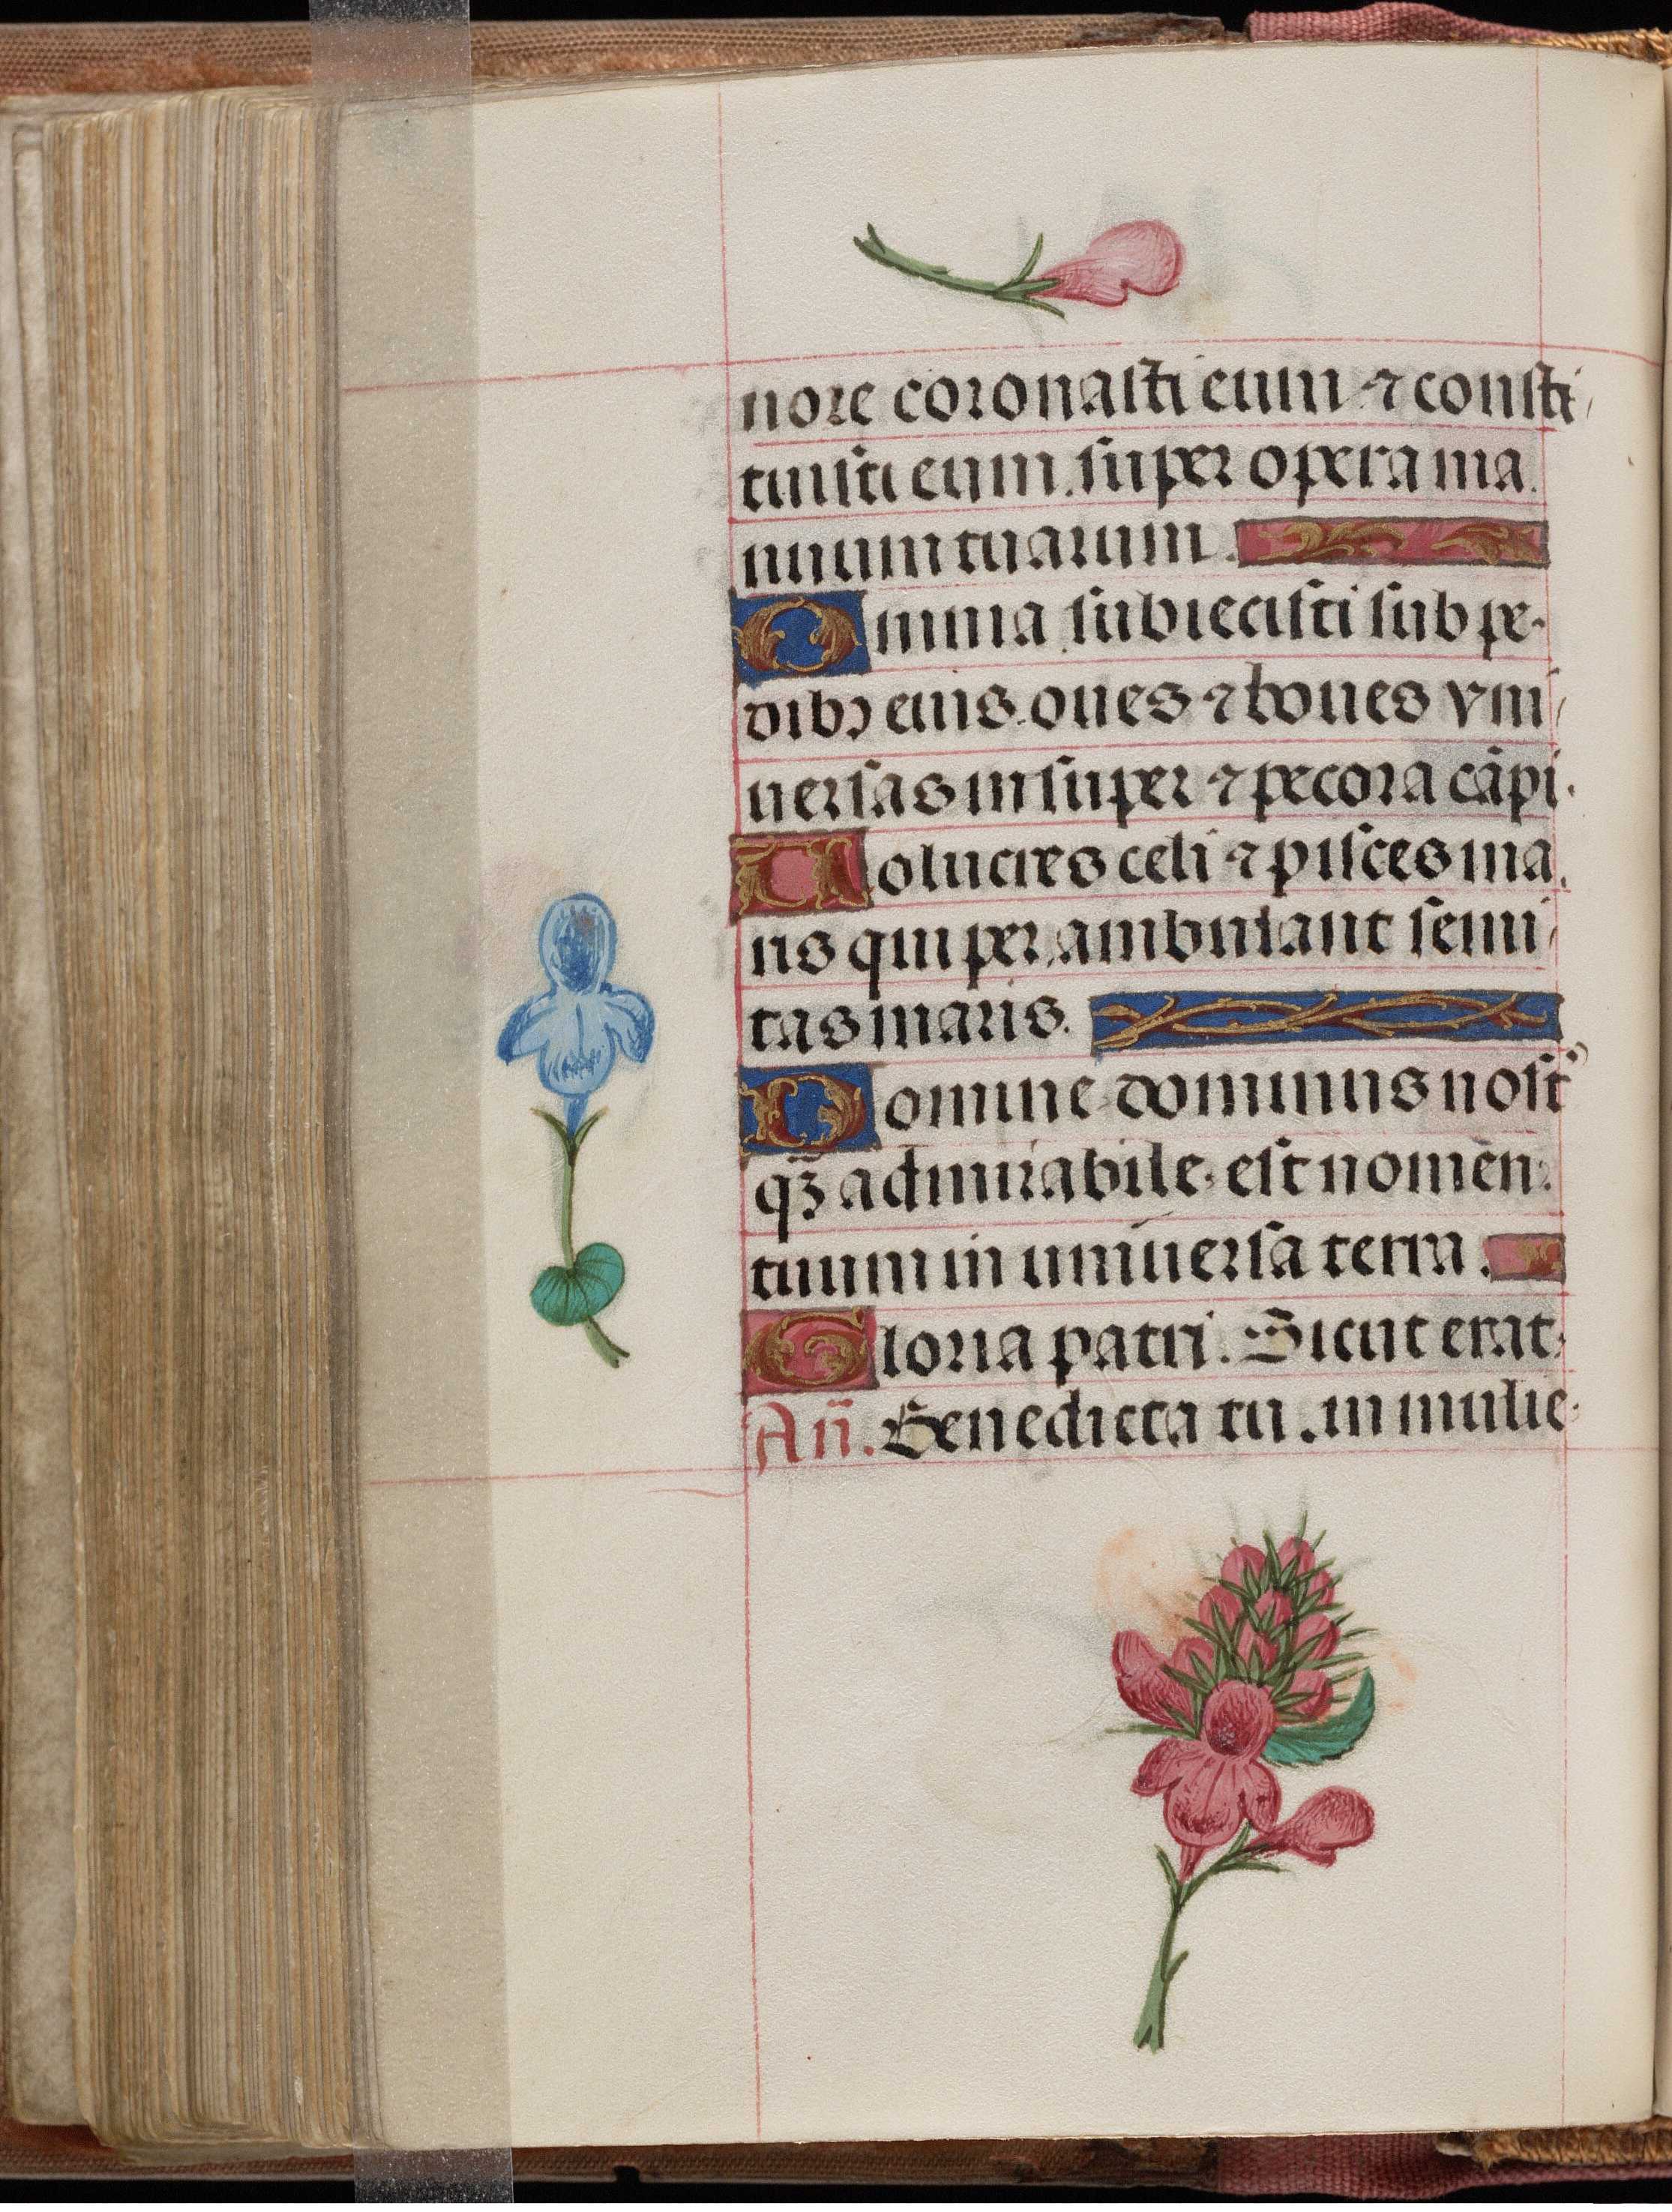 nore coronasti eum ⁊ consti
tuisti eum super opera ma
nuum tuarum.
Omnia subiecisti sub pe
dibꝫ eius. oues ⁊ boues vni
uersas insuper ⁊ pecora cāpi.
Volucres celi ⁊ pisces ma
ris qui perambulant semi
tas maris.
Domine dominus nost᷑
qꝫ admirabile est nomen
tuum in uniuersa terra.
Gloria patri. Sicut erat.
An̄. Benedicta tu. in mulie